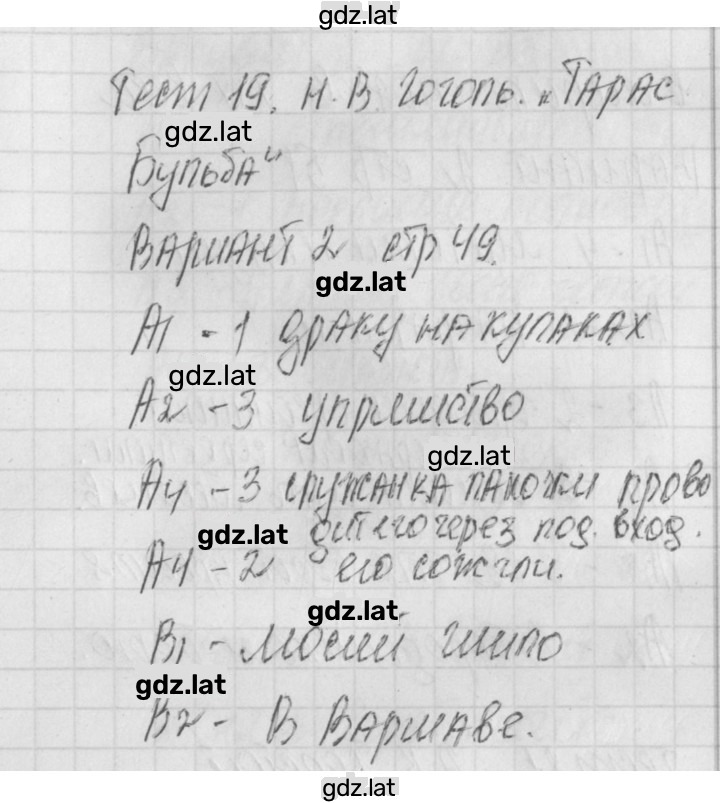 gdz.lat
Тест 19. Н.В. Гоголь. „Тарас
gdz.lat
Бульба“
Вариант 2 стр 49.
gdz.lat
А1 - 1 драку на кулаках
gdz.lat
А2 - 3 упрямство
gdz.lat
А4 - 3 служанка паночки прово
gdz.lat
дит его через под. вход.
А4 - 2 его сожгли.
gdz.lat
В1 - Мосий Шило
gdz.lat
В2 - В Варшаве.
gdz.lat